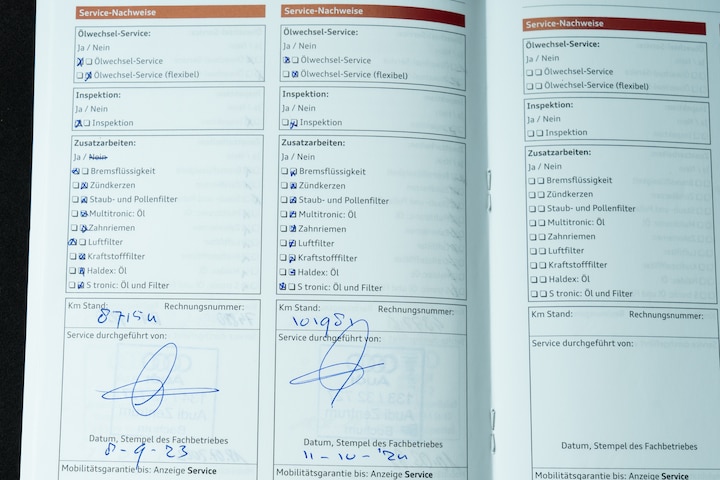 Service-Nachweise
Ölwechsel-Service:
Ja / Nein
Ölwechsel-Service
Ölwechsel-Service (flexibel)
Inspektion:
Ja / Nein
Inspektion
Zusatzarbeiten:
Ja / Nein
Bremsflüssigkeit
Zündkerzen
Staub- und Pollenfilter
Multitronic: Öl
Zahnriemen
Luftfilter
Kraftstofffilter
Haldex: Öl
S tronic: Öl und Filter
Km Stand: Rechnungsnummer:
Service durchgeführt von:
Datum, Stempel des Fachbetriebes
8-9-23
Mobilitätsgarantie bis: Anzeige Service
Service-Nachweise
Ölwechsel-Service:
Ja / Nein
Ölwechsel-Service
Ölwechsel-Service (flexibel)
Inspektion:
Ja / Nein
Inspektion
Zusatzarbeiten:
Ja / Nein
Bremsflüssigkeit
Zündkerzen
Staub- und Pollenfilter
Multitronic: Öl
Zahnriemen
Luftfilter
Kraftstofffilter
Haldex: Öl
S tronic: Öl und Filter
Km Stand: Rechnungsnummer:
Service durchgeführt von:
Datum, Stempel des Fachbetriebes
11-10-'24
Mobilitätsgarantie bis: Anzeige Service
Service-Nachweise
Ölwechsel-Service:
Ja / Nein
Ölwechsel-Service
Ölwechsel-Service (flexibel)
Inspektion:
Ja / Nein
Inspektion
Zusatzarbeiten:
Ja / Nein
Bremsflüssigkeit
Zündkerzen
Staub- und Pollenfilter
Multitronic: Öl
Zahnriemen
Luftfilter
Kraftstofffilter
Haldex: Öl
S tronic: Öl und Filter
Km Stand: Rechnungsnummer:
Service durchgeführt von:
Datum, Stempel des Fachbetriebes
Mobilitätsgarantie bis: Anzeige Service